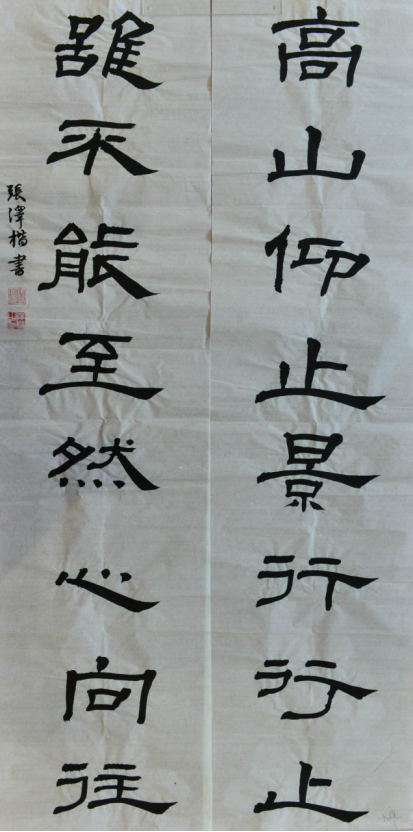 高山仰止景行行止
雖不能至然心向往
張澤楷書